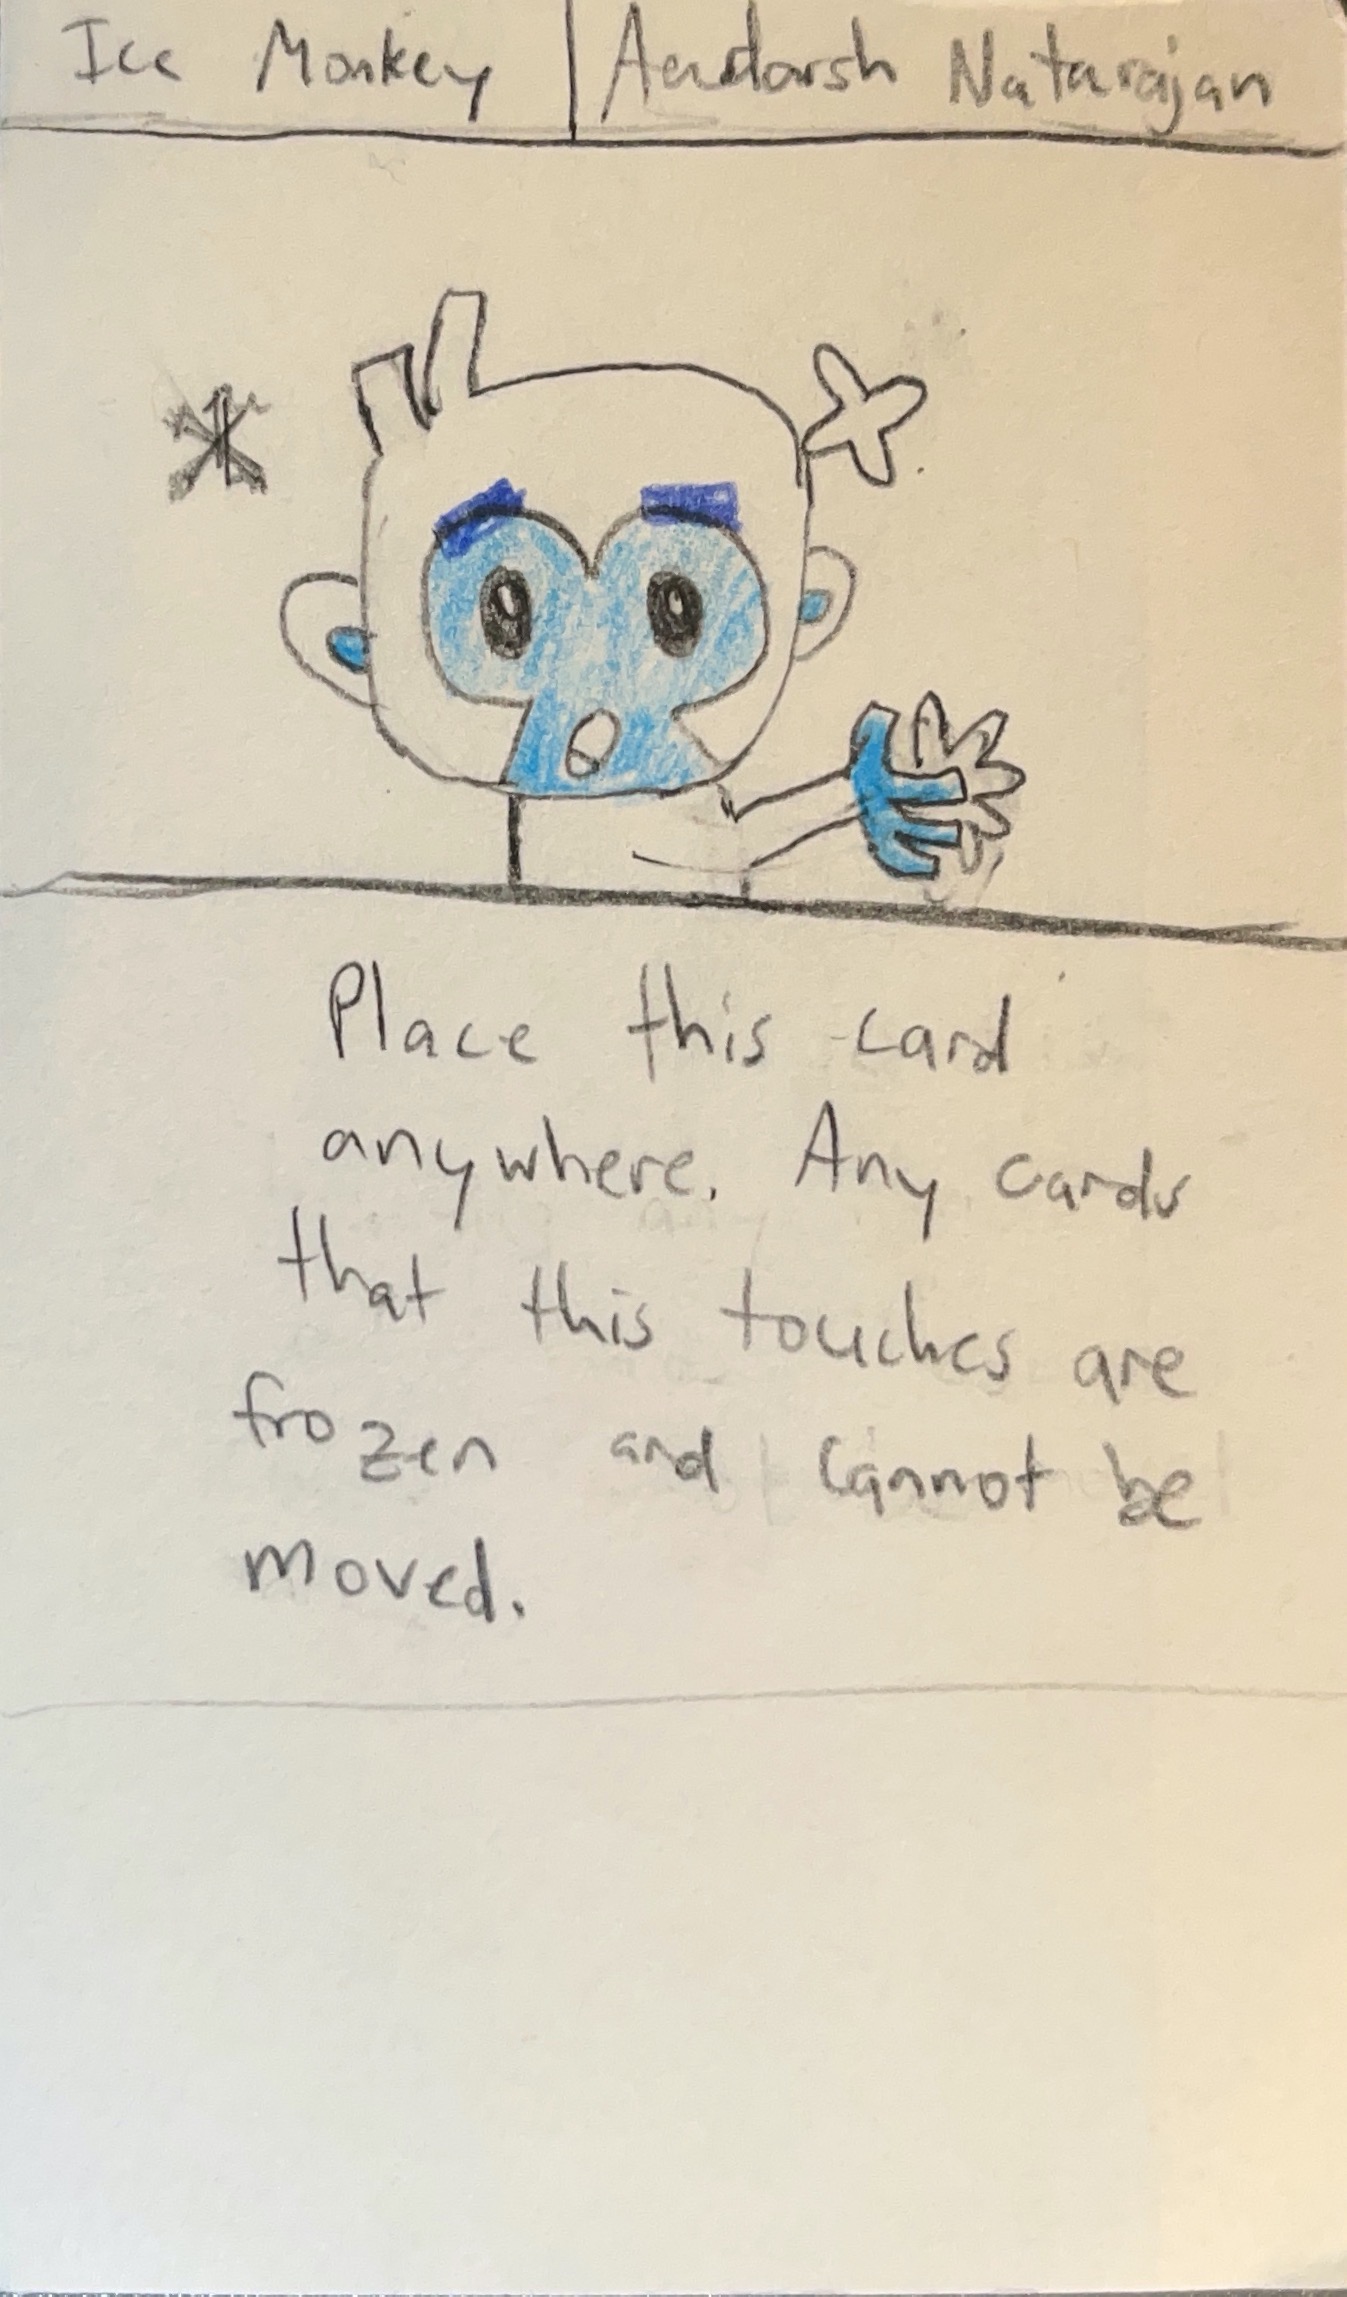 Ice Monkey | Aadarsh Natarajan
Place this card
anywhere. Any cards
that this touches are
frozen and cannot be
moved.